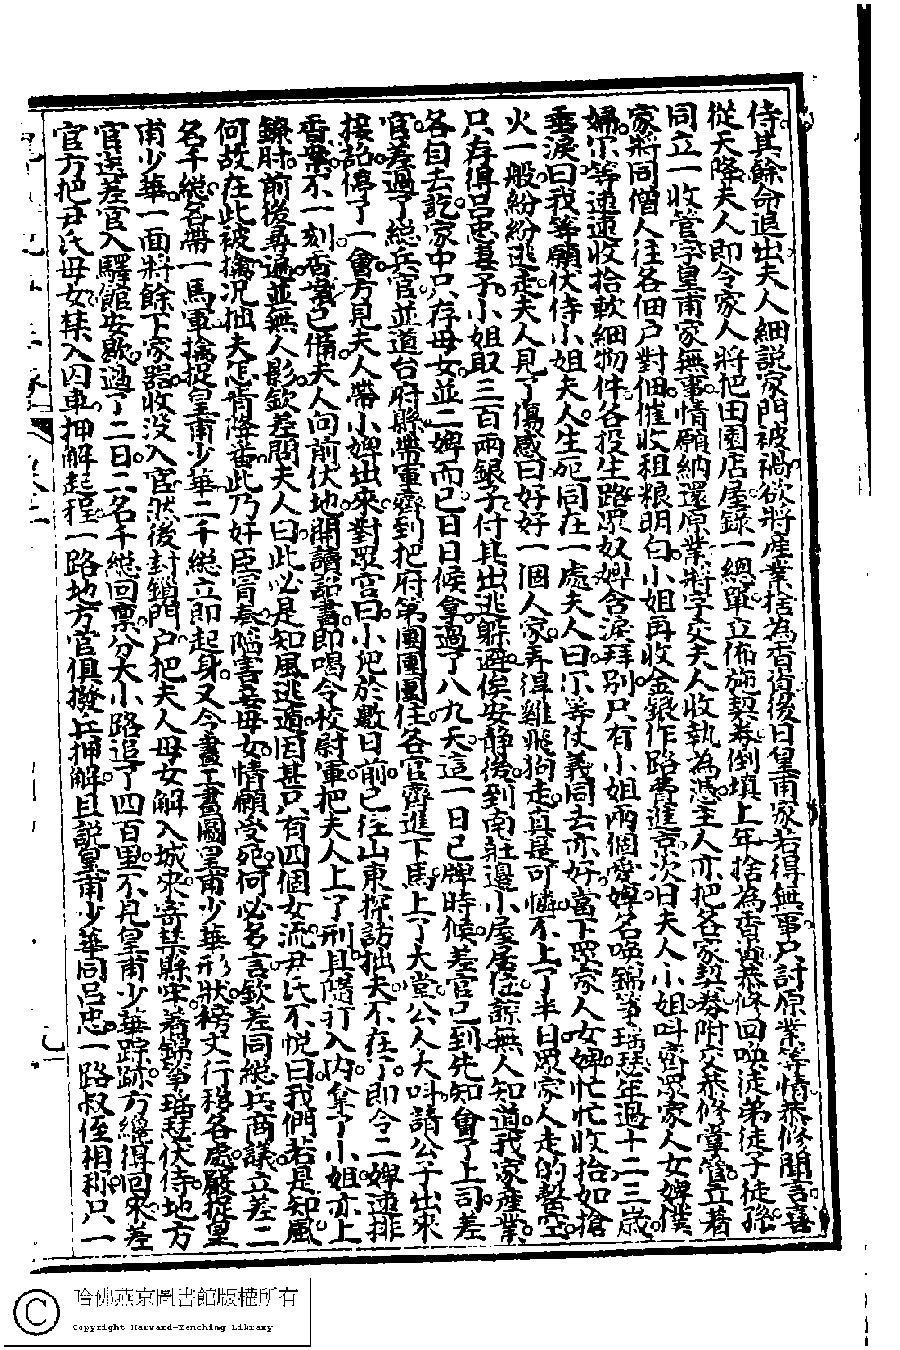 侍其餘命退出夫人細說家門被禍欲將產業捨為香資後日皇甫家若得無事戶討原業等情恭修聞言喜
從天降夫人即令家人將把田園店屋錄一總單立佈施契券倒填上年捨為香資恭修回喚徒弟徒子徒孫
同立一收管字皇甫家無事情願納還原業將字交夫人收執為憑主人亦把各家契券附交恭修掌管立着
家將同僧人往各佃戶對佃催收租粮明白小姐再收金銀作路費進京次日夫人小姐叫齊眾家人女婢僕
婦尔等速速收拾軟細物件各投生路眾奴婢含淚拜別只有小姐兩個愛婢名喚錦箏瑤琴年過十二三歲
垂淚曰我等願伏侍小姐夫人生死同在一處夫人曰尔等仗義同去亦好當下眾家人女婢忙忙收拾如搶
火一般紛紛逃走夫人見了傷感曰好好一個人家弄得雞飛狗走真是可憐不上了半日眾家人走的
只存得呂忠妻子小姐取三百兩銀子付其出逃躲避俟安靜後到南莊邊小屋居住諒無人知道我家產業
各自去訖家中只存母女並二婢而已日日候拿過了八九天這一日已牌時候差官已到先知會了上司差
官差過了總兵官並道台府縣帶軍齊到把府第團團圍住各官齊進下馬上了大堂公人大叫請公子出來
接詔停了一會方見夫人帶小婢出來對眾官曰小兒於數日前已往山東探訪拙夫不在了即令二婢速排
香案不一刻香案已備夫人向前伏地開讀詔書即喝令校尉軍把夫人上了刑具隨打入內拿了小姐亦上
鐐肘前後尋遍並無人影欽差問夫人曰此必是知風逃遁因甚只有四個女流尹氏不悅曰我們若是知風
何故在此被擒况拙夫怎肯降番此乃奸臣冒奏陷害妾母女情願受死何必多言欽差同總兵商議立差二
名千總各帶一馬軍擒捉皇甫少華二千總立即起身又令畫工畫圖皇甫少華形狀榜文行移各處嚴捉皇
甫少華一面將餘下家器收沒入官然後封鎖門戶把夫人母女解入城來寄禁縣牢着錦箏瑤琴伏侍地方
官送差官入驛館安歇過了二日二名千總回禀分大小路追了四百里不見皇甫少華踪跡方纔得回來差
官方把尹氏母女禁入囚車押解起程一路地方官俱撥兵押解且說皇甫少華同呂忠一路叔侄相稱只一
哈佛燕京圖書館版權所有
Copyright Harvard-Yenching Library